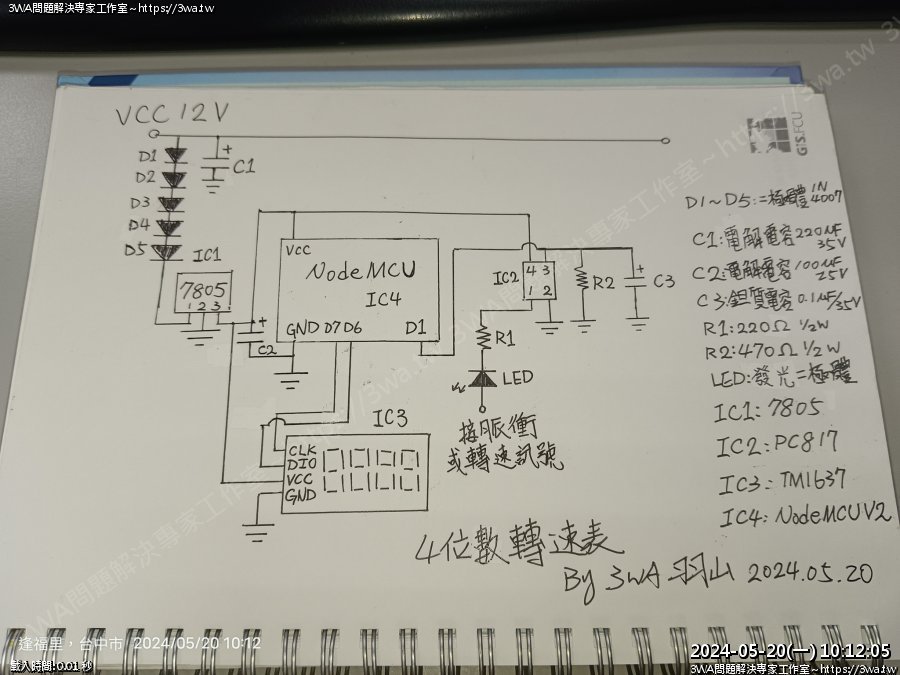 3WA問題解決專家工作室~https://3wa.tw
VCC 12V
GIS.FCU
D1
D2
D3
D4
D5
+
C1
IC1
7805
1 2 3
+
C2
VCC
NodeMCU
IC4
GND D7 D6 D1
IC2
4 3
1 2
R2
+
C3
R1
LED
接脈衝
或轉速訊號
IC3
CLK
DIO
VCC
GND
D1~D5:二極體 1N4007
C1:電解電容 220uF 35V
C2:電解電容 100uF 25V
C3:鉭質電容 0.1uF/35V
R1:220Ω 1/2W
R2:470Ω 1/2W
LED:發光二極體
IC1: 7805
IC2: PC817
IC3: TM1637
IC4: NodeMCU V2
4位數轉速表
By 3WA 羽山 2024.05.20
3WA問題解決專家工作室~https://3wa.tw
逢福里,台中市 2024/05/20 10:12
載入時間:0.01 秒
2024-05-20(一) 10:12:05
3WA問題解決專家工作室~https://3wa.tw